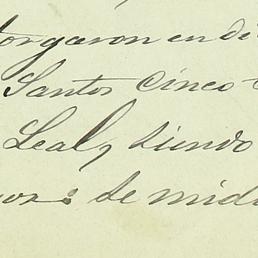 torgaron en di
Santos Cinco
Leal, siendo
de mid